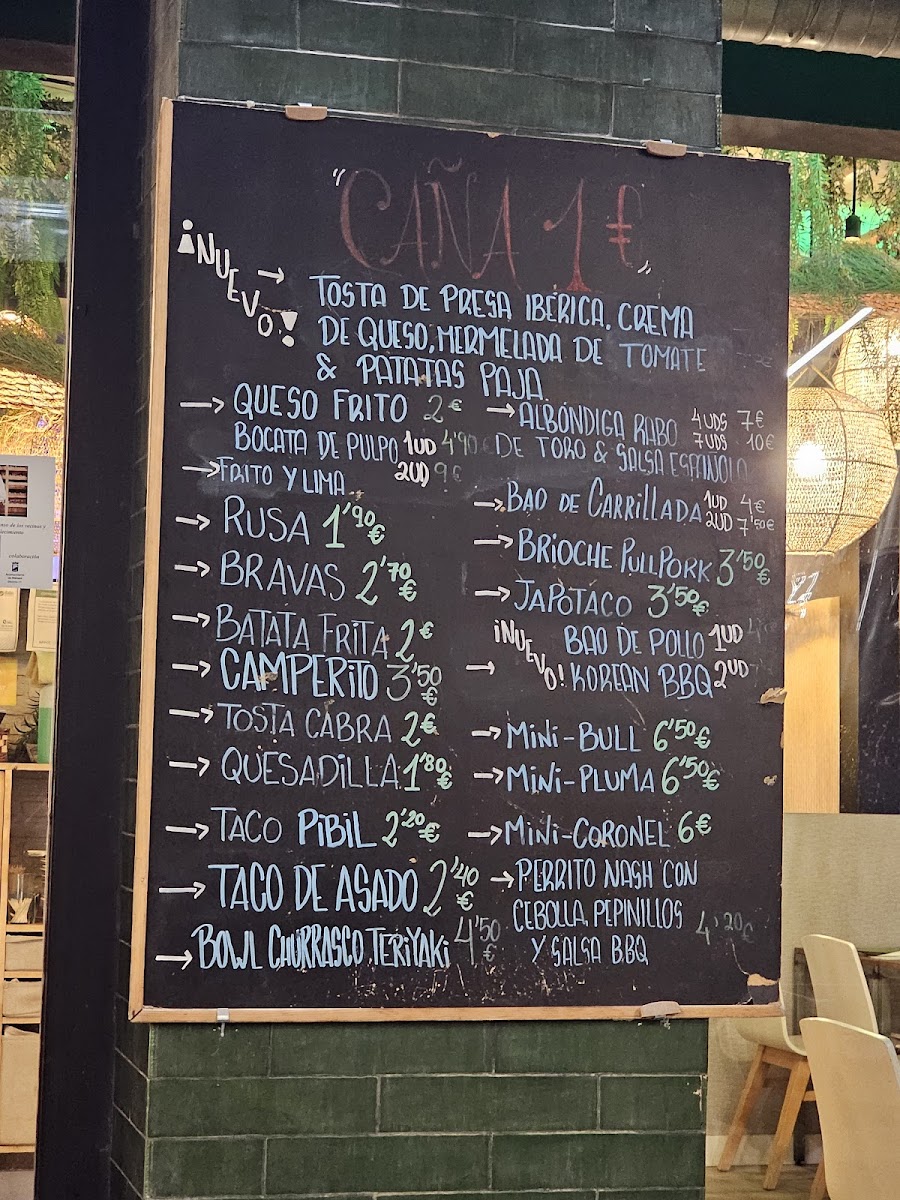 "CAÑA 1€"
¡NUEVO!
TOSTA DE PRESA IBÉRICA, CREMA
DE QUESO, MERMELADA DE TOMATE
& PATATAS PAJA
→ QUESO FRITO 2€
BOCATA DE PULPO 1UD 4'90€
→ FRITO Y LIMA 2UD 9€
→ RUSA 1'90€
→ BRAVAS 2'70€
→ BATATA FRITA 2€
→ CAMPERITO 3'50€
→ TOSTA CABRA 2€
→ QUESADILLA 1'80€
→ TACO PIBIL 2'20€
→ TACO DE ASADO 2'40€
→ BOWL CHURRASCO TERIYAKI 4'50€
→ ALBÓNDIGA RABO 4UDS 7€
7UDS 10€
DE TORO & SALSA ESPAÑOLA
→ BAO DE CARRILLADA 1UD 4€
2UD 7'50€
→ BRIOCHE PULLPORK 3'50€
→ JAPOTACO 3'50€
¡NUEVO! BAO DE POLLO 1UD
→ KOREAN BBQ 2UD
→ MINI-BULL 6'50€
→ MINI-PLUMA 6'50€
→ MINI-CORONEL 6€
→ PERRITO NASH CON
CEBOLLA, PEPINILLOS 4'20€
Y SALSA BBQ
colaboración